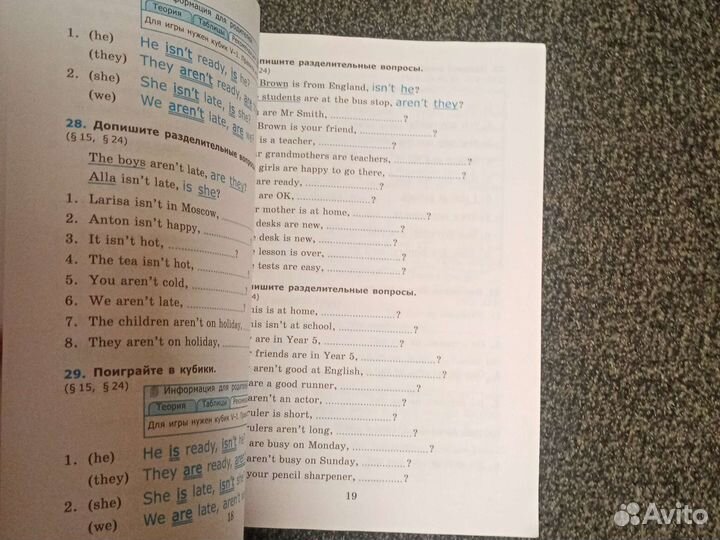 Информация для родителей
Теория Таблицы
Для игры нужен кубик V–1.
1. (he) He isn't ready, is he?
(they) They aren't ready, are
2. (she) She isn't late, is she?
(we) We aren't late, are we?
28. Допишите разделительные вопросы
(§ 15, § 24)
The boys aren't late, are they?
Alla isn't late, is she?
1. Larisa isn't in Moscow,
2. Anton isn't happy,
3. It isn't hot, ?
4. The tea isn't hot,
5. You aren't cold,
6. We aren't late,
7. The children aren't on holiday,
8. They aren't on holiday,
29. Поиграйте в кубики.
(§ 15, § 24)
Информация для родителей
Теория Таблицы
Для игры нужен кубик V–1.
1. (he) He is ready, isn't he?
(they) They are ready, aren't
2. (she) She is late, isn't she?
(we) We are late, aren't
18
допишите разделительные вопросы.
24)
Brown is from England, isn't he?
students are at the bus stop, aren't they?
are Mr Smith, ?
Brown is your friend, ?
is a teacher, ?
grandmothers are teachers, ?
girls are happy to go there, ?
are ready, ?
are OK, ?
mother is at home, ?
desks are new, ?
desk is new, ?
lesson is over, ?
tests are easy, ?
пишите разделительные вопросы.
24)
his is at home, ?
his isn't at school, ?
are in Year 5, ?
friends are in Year 5, ?
aren't good at English, ?
are a good runner, ?
aren't an actor, ?
ruler is short, ?
rulers aren't long, ?
are busy on Monday, ?
aren't busy on Sunday, ?
your pencil sharpener, ?
19
Avito